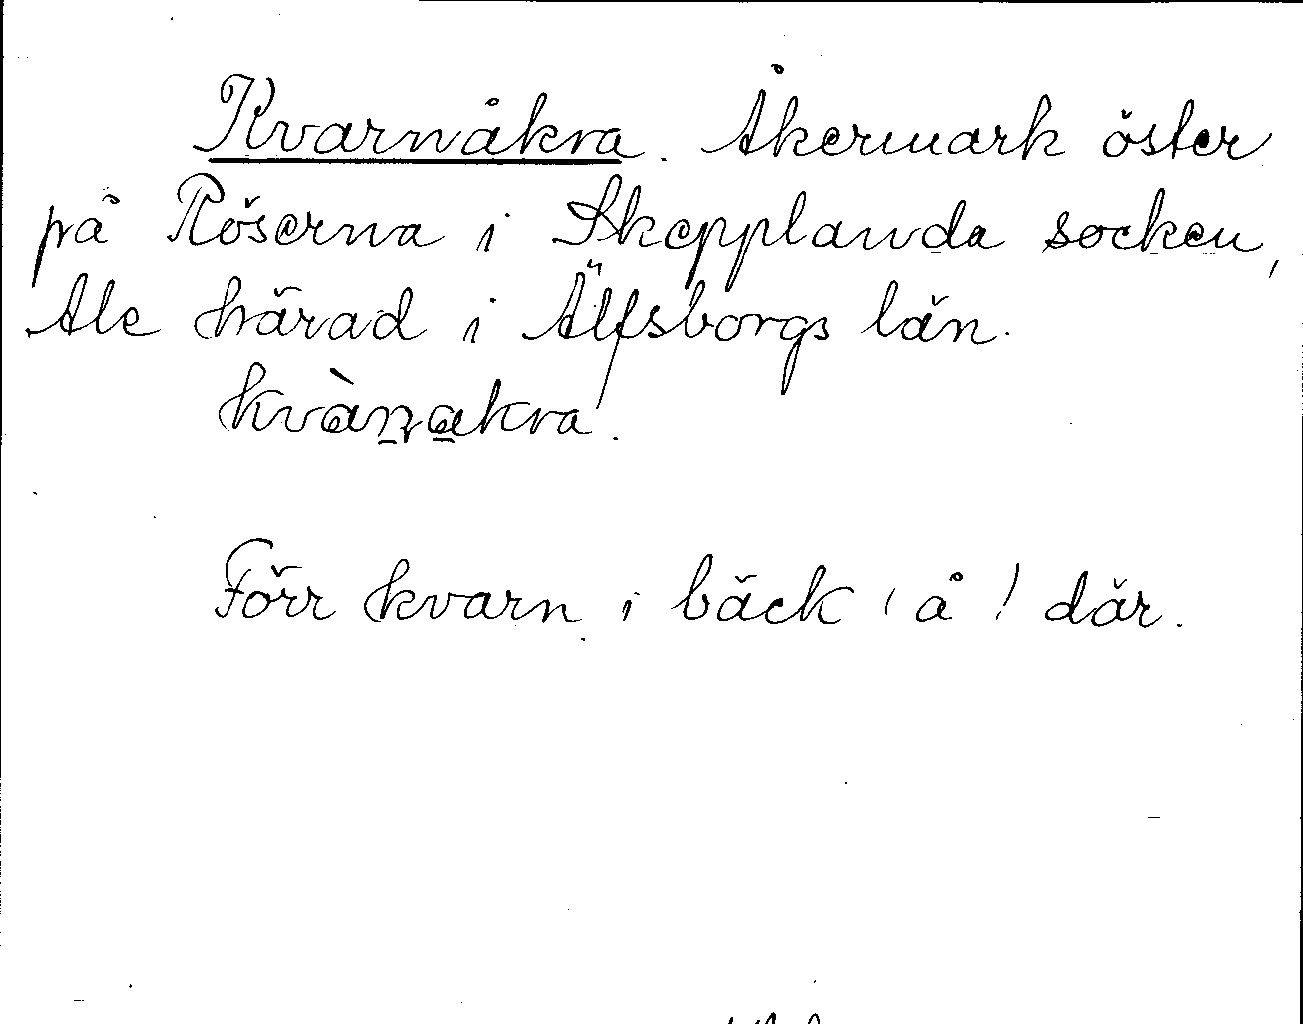 Kvarnåkra. Åkermark öster
på Röserna i Skepplanda socken,
Ale härad i Älfsborgs län.
kvàn̲a̲kra.
Förr kvarn i bäck (å) där.